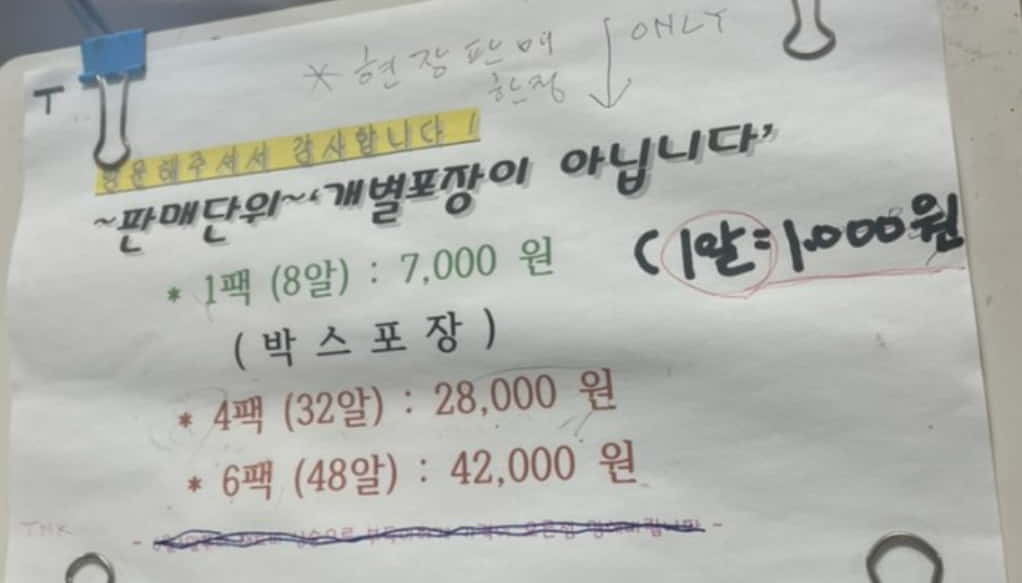 * 현장판매 ONLY
한정
T
방문해주셔서 감사합니다!
~판매단위~‘개별포장이 아닙니다’
(1알=1.000원
* 1팩 (8알) : 7,000 원
( 박 스 포 장 )
* 4팩 (32알) : 28,000 원
* 6팩 (48알) : 42,000 원